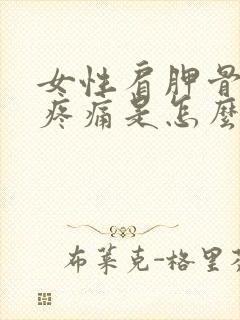 女性肩胛骨
疼痛是怎麼
布莱克-格里